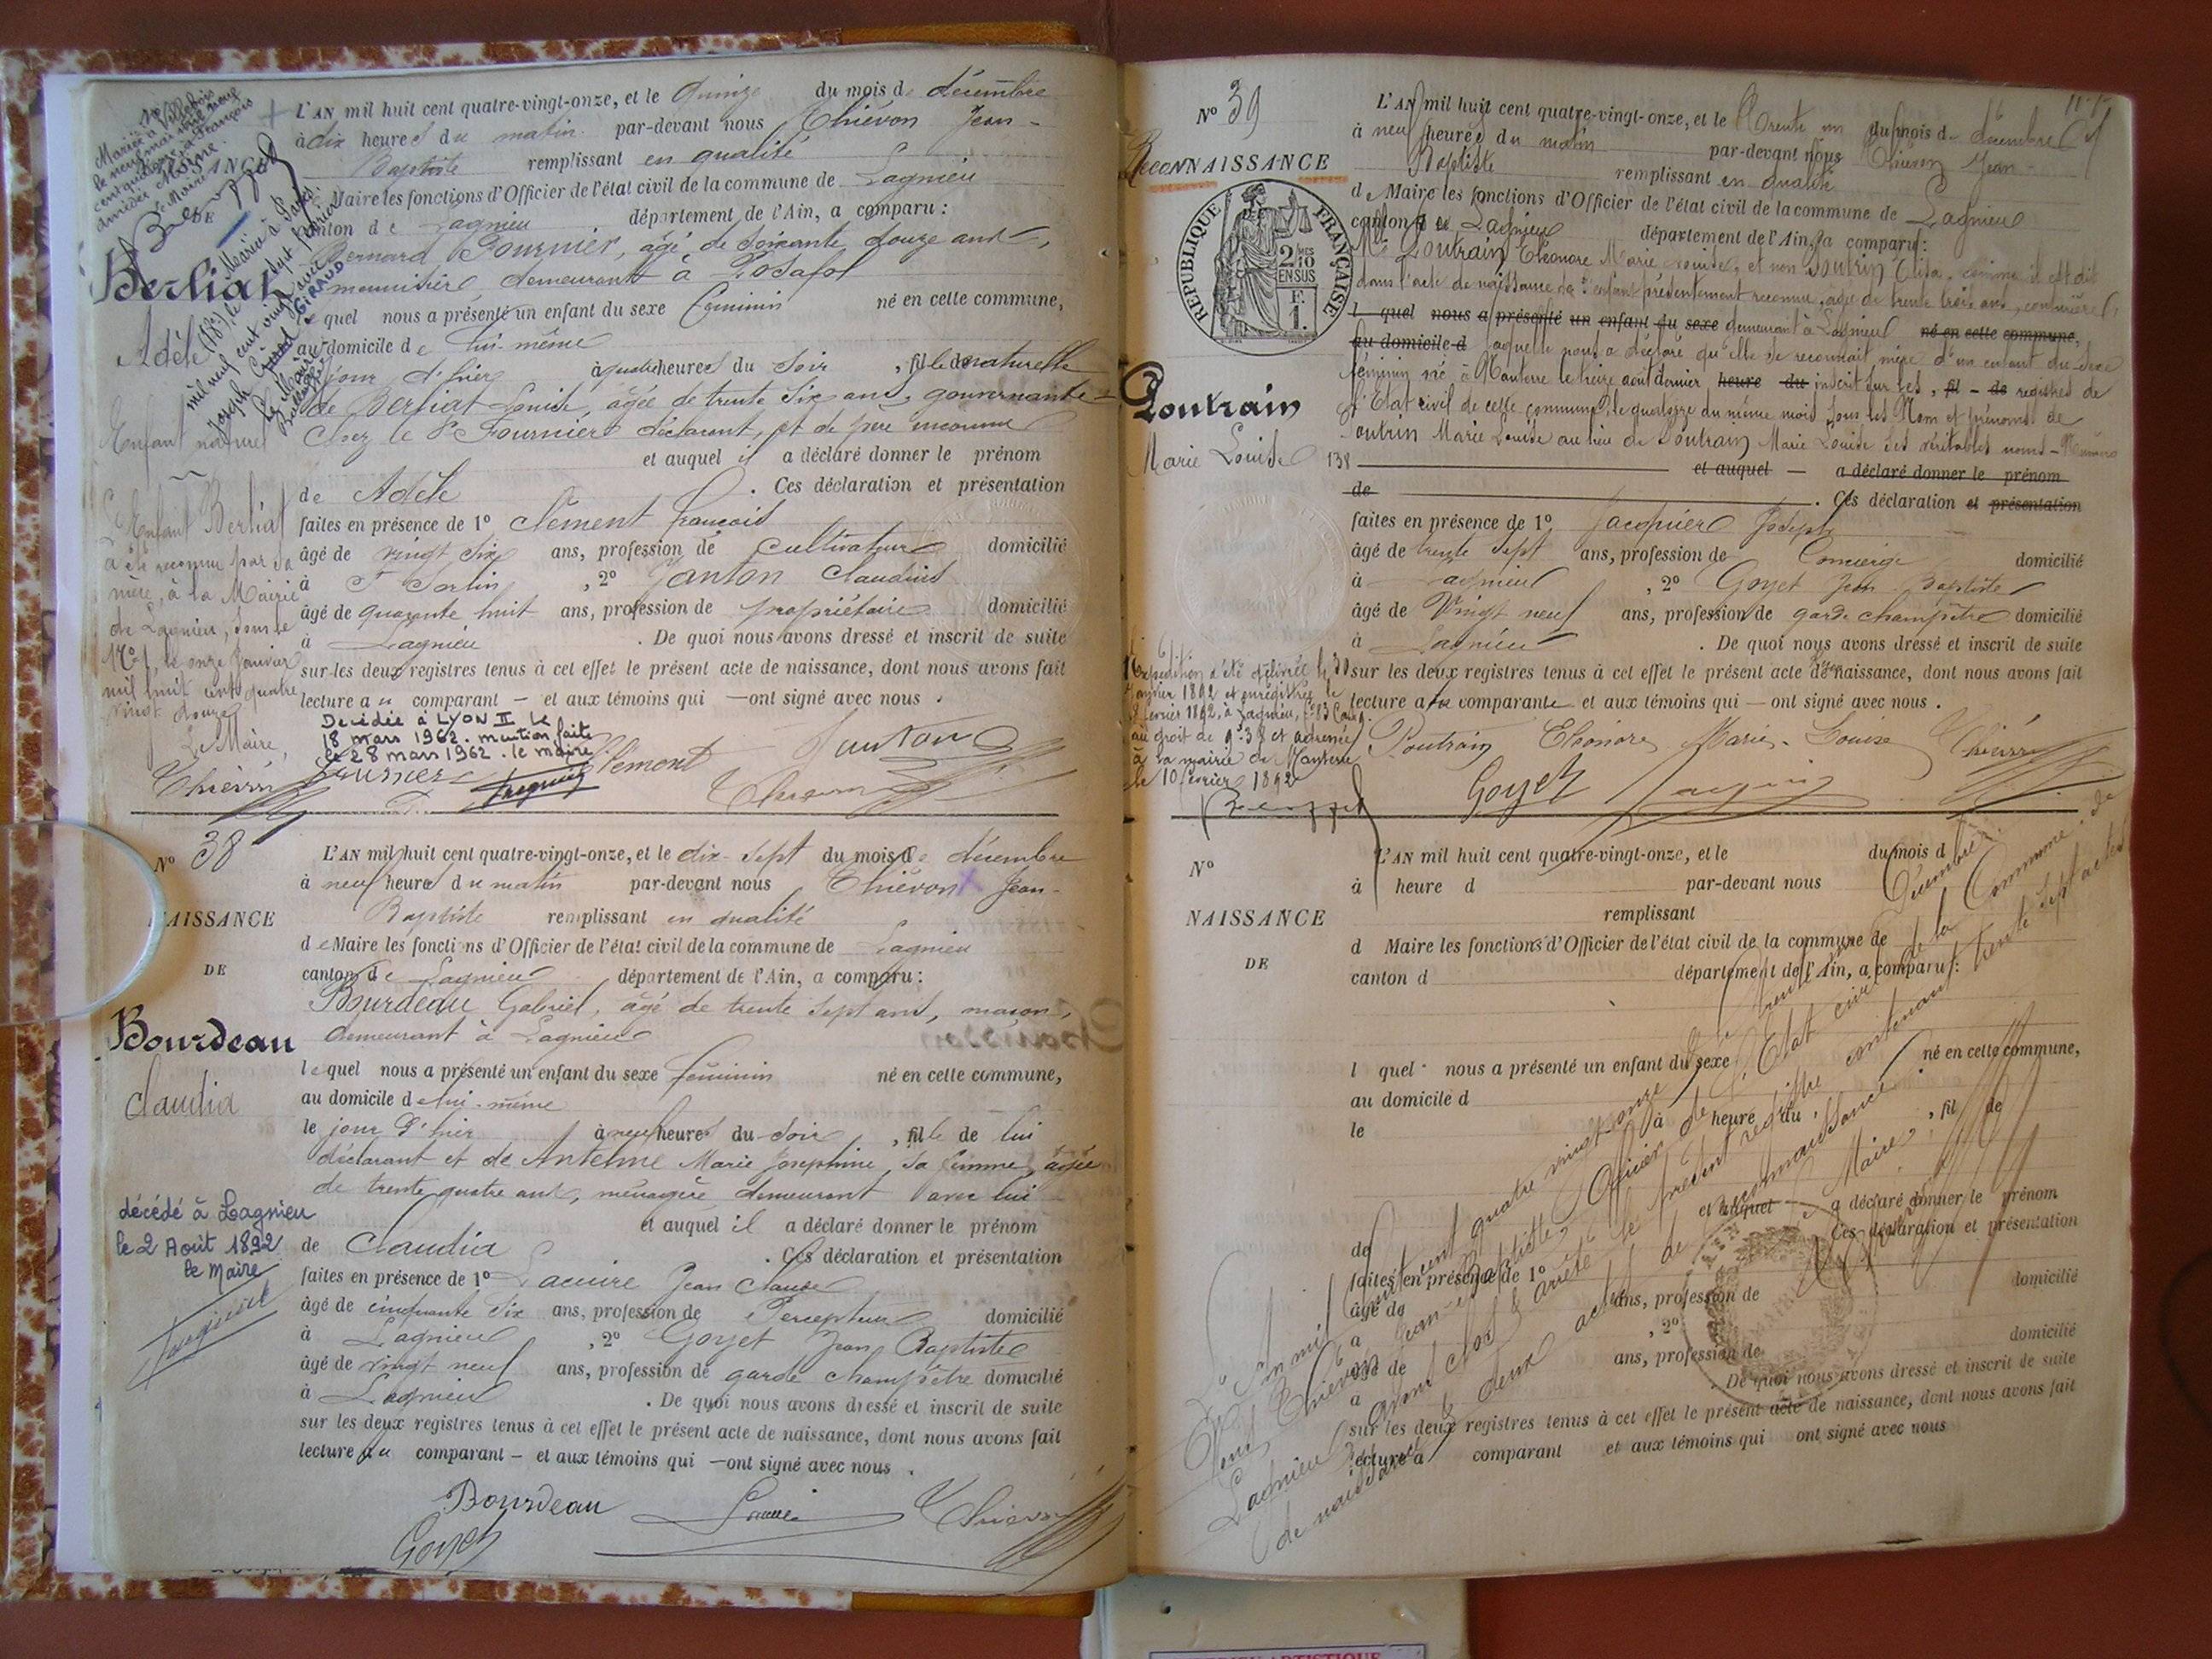 L'AN mil huit cent quatre-vingt-onze, et le Quinze du mois de décembre
à dix heures du matin par-devant nous Thiévon Jean-
Baptiste remplissant en qualité
de Maire les fonctions d'Officier de l'état civil de la commune de Lagnieu
canton de Lagnieu département de l'Ain, a comparu :
Bernard Fournier, âgé de soixante douze ans,
meunier, demeurant à Posafol
lequel nous a présenté un enfant du sexe féminin né en cette commune,
au domicile de lui-même
jour d'hier à quatre heures du soir, fille naturelle
de Berliat Louise, âgée de trente six ans, gouvernante
chez le Sr Fournier déclarant, et de père inconnu
et auquel il a déclaré donner le prénom
de Adèle. Ces déclaration et présentation
faites en présence de 1º Clément François
âgé de vingt six ans, profession de cultivateur domicilié
à St Sorlin, 2º Janton Claudius
âgé de quarante huit ans, profession de propriétaire domicilié
à Lagnieu. De quoi nous avons dressé et inscrit de suite
sur les deux registres tenus à cet effet le présent acte de naissance, dont nous avons fait
lecture au comparant – et aux témoins qui – ont signé avec nous.
DE
Berliat
Adèle
Enfant naturel
L'Enfant Berliat
a été reconnu par sa
mère, à la Mairie
de Lagnieu, sous le
Nº 1, le onze Janvier
mil huit cent quatre
vingt douze
Le Maire,
Thiévon
Marié à Paris
(18e), le vingt sept février
mil neuf cent vingt avec
Joseph GIRAUD
le Maire
Décédée à LYON II le
18 mars 1962. mention faite
le 28 mars 1962. le maire
Fournier Clément Janton
Thiévon
Nº 38
NAISSANCE
DE
Bourdeau
Claudia
décédé à Lagnieu
le 2 Août 1892
le Maire
L'AN mil huit cent quatre-vingt-onze, et le dix-sept du mois de décembre
à neuf heures du matin par-devant nous Thiévon Jean-
Baptiste remplissant en qualité
de Maire les fonctions d'Officier de l'état civil de la commune de Lagnieu
canton de Lagnieu département de l'Ain, a comparu :
Bourdeau Gabriel, âgé de trente sept ans, maçon,
demeurant à Lagnieu
lequel nous a présenté un enfant du sexe féminin né en cette commune,
au domicile de lui-même
le jour d'hier à neuf heures du soir, fille de lui
déclarant et de Antelme Marie Joséphine, sa femme, âgée
de trente quatre ans, ménagère demeurant avec lui
et auquel il a déclaré donner le prénom
de Claudia. Ces déclaration et présentation
faites en présence de 1º Lacuire Jean Claude
âgé de cinquante six ans, profession de Percepteur domicilié
à Lagnieu, 2º Goyet Jean Baptiste
âgé de vingt neuf ans, profession de garde champêtre domicilié
à Lagnieu. De quoi nous avons dressé et inscrit de suite
sur les deux registres tenus à cet effet le présent acte de naissance, dont nous avons fait
lecture au comparant – et aux témoins qui – ont signé avec nous.
Bourdeau Thiévon
Goyet
Nº 39
RECONNAISSANCE
REPUBLIQUE FRANÇAISE
2/10 EN SUS
F. 1.
Poutrain
Marie Louise
L'AN mil huit cent quatre-vingt-onze, et le Trente un du mois de décembre
à neuf heures du matin par-devant nous Thiévon Jean-
Baptiste remplissant en qualité
de Maire les fonctions d'Officier de l'état civil de la commune de Lagnieu
canton de Lagnieu département de l'Ain, a comparu :
Poutrain Eléonore Marie Louise, et non Poutrin Elisa, comme il est dit
dans l'acte de naissance de l'enfant présentement reconnu, âgée de trente trois ans, couturière,
l quel nous a présenté un enfant du sexe demeurant à Lagnieu né en cette commune,
au domicile d laquelle nous a déclaré qu'elle se reconnait mère d'un enfant du sexe
féminin né à Nanterre le treize août dernier heure du inscrit sur les, fil – de registres de
l'Etat civil de cette commune, le quatorze du même mois sous les Nom et prénoms de
Poutrin Marie Louise au lieu de Poutrain Marie Louise ses véritables noms – Numéro
138 et auquel – a déclaré donner le prénom
de. Ces déclaration et présentation
faites en présence de 1º Jacquier Joseph
âgé de trente sept ans, profession de Concierge domicilié
à Lagnieu, 2º Goyet Jean Baptiste
âgé de Vingt neuf ans, profession de garde champêtre domicilié
à Lagnieu. De quoi nous avons dressé et inscrit de suite
sur les deux registres tenus à cet effet le présent acte de naissance, dont nous avons fait
lecture à la comparante et aux témoins qui – ont signé avec nous.
Expédition a été délivrée le 30
Janvier 1892 et enregistrée le
février 1892, à Lagnieu,
au droit de 9.38 et adressée
à la mairie de Nanterre
le 10 février 1892
Poutrain Eléonore Marie Louise Thiévon
Goyet Jacquier
Nº
NAISSANCE
DE
L'AN mil huit cent quatre-vingt-onze, et le du mois d
à heure d par-devant nous
remplissant
d Maire les fonctions d'Officier de l'état civil de la commune de
canton d département de l'Ain, a comparu :
l quel nous a présenté un enfant du sexe né en cette commune,
au domicile d
le à heure du, fil de
et auquel a déclaré donner le prénom
de Ces déclaration et présentation
faites en présence de 1º domicilié
âgé de ans, profession de
à, 2º domicilié
âgé de ans, profession de
à. De quoi nous avons dressé et inscrit de suite
sur les deux registres tenus à cet effet le présent acte de naissance, dont nous avons fait
lecture à comparant et aux témoins qui ont signé avec nous
L'an mil huit cent quatre vingt onze et le trente un Décembre
Nous Thiévon Jean-Baptiste, Officier de l'Etat civil de la Commune de
Lagnieu avons clos et arrêté le présent registre contenant trente sept actes
de naissance et deux actes de reconnaissance
Maire